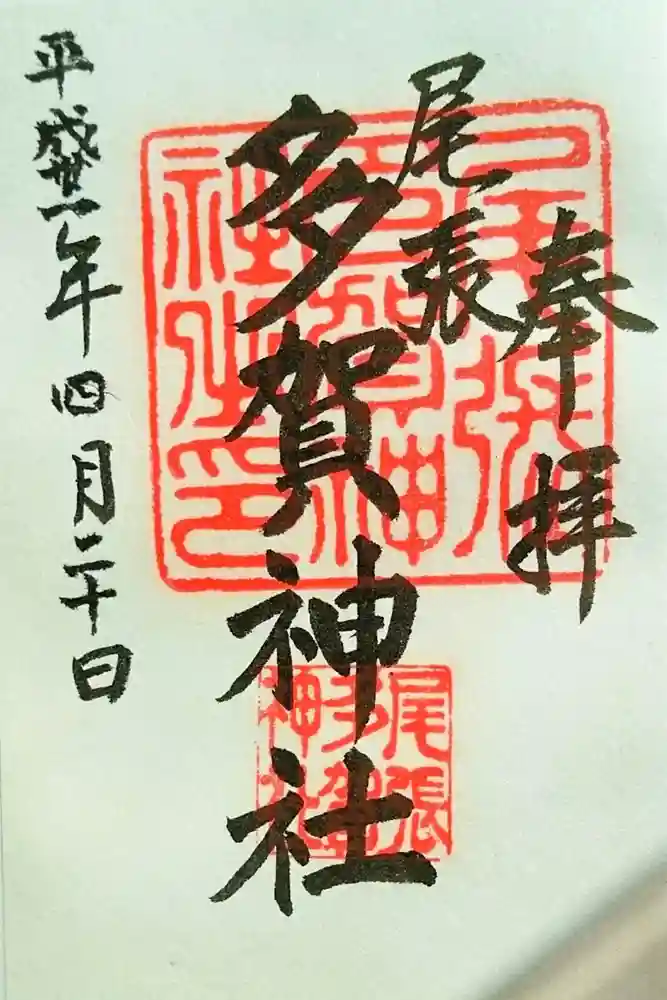 奉拝
尾張
多賀神社
平成丗一年四月二十日
尾張
多賀神
社之印
尾張
多賀
神社